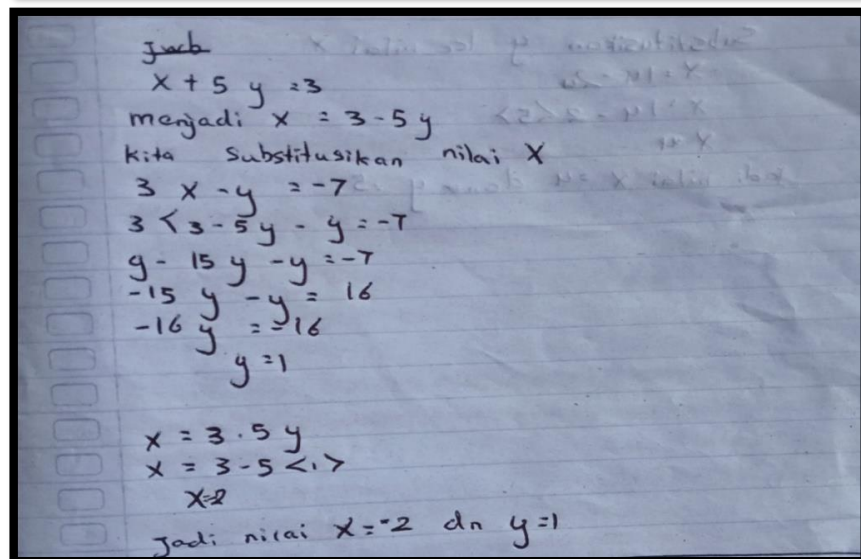 Jwb
x + 5 y = 3
menjadi x = 3 - 5 y
kita Substitusikan nilai x
3 x - y = -7
3 < 3 - 5 y - y = -7
9 - 15 y - y = -7
-15 y - y = 16
-16 y = -16
y = 1
x = 3 . 5 y
x = 3 - 5 <1>
x=2
Jadi nilai x = -2 dn y = 1